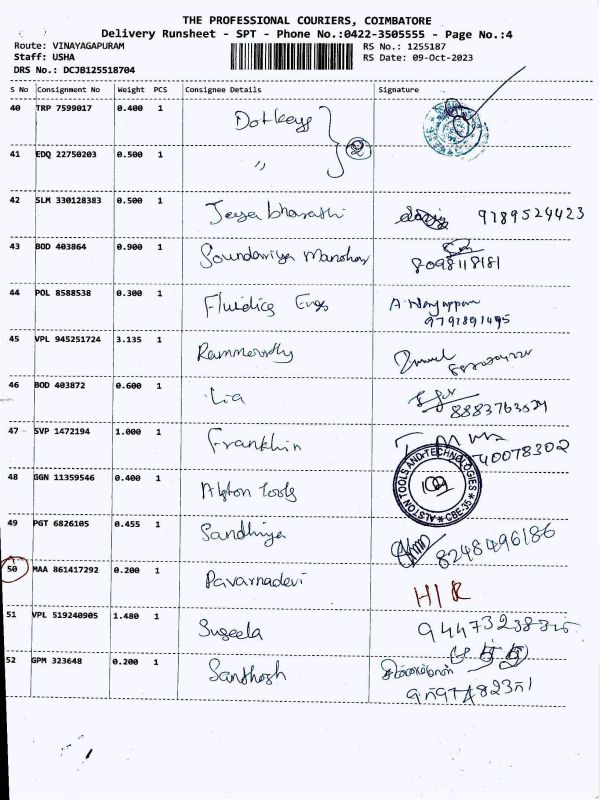 THE PROFESSIONAL COURIERS, COIMBATORE
Delivery Runsheet - SPT - Phone No.:0422-3505555 - Page No.:4
Route: VINAYAGAPURAM RS No.: 1255187
Staff: USHA RS Date: 09-Oct-2023
DRS No.: DCJB125518704
S No Consignment No Weight PCS Consignee Details Signature
40 TRP 7599017 0.400 1 Dotkeys
41 EDQ 22750203 0.500 1 〃 2
42 SLM 330128383 0.500 1 Jeyabharathi 9789524423
43 BOD 403864 0.900 1 Soundariya Manohar 8098118181
44 POL 8588538 0.300 1 Fluidics Engs A. Nayappan
9791891495
45 VPL 945251724 3.135 1 Rammoorthy
46 BOD 403872 0.600 1 Lia
47 SVP 1472194 1.000 1 Franklin 740078302
48 GGN 11359546 0.400 1 Alston tools ALSTON TOOLS AND TECHNOLOGIES * CBE-35 *
49 PGT 6826105 0.455 1 Sandhiya 8248496186
50 MAA 861417292 0.200 1 Pavarnadevi H/R
51 VPL 519240905 1.480 1 Suseela
52 GPM 323648 0.200 1 Santhosh